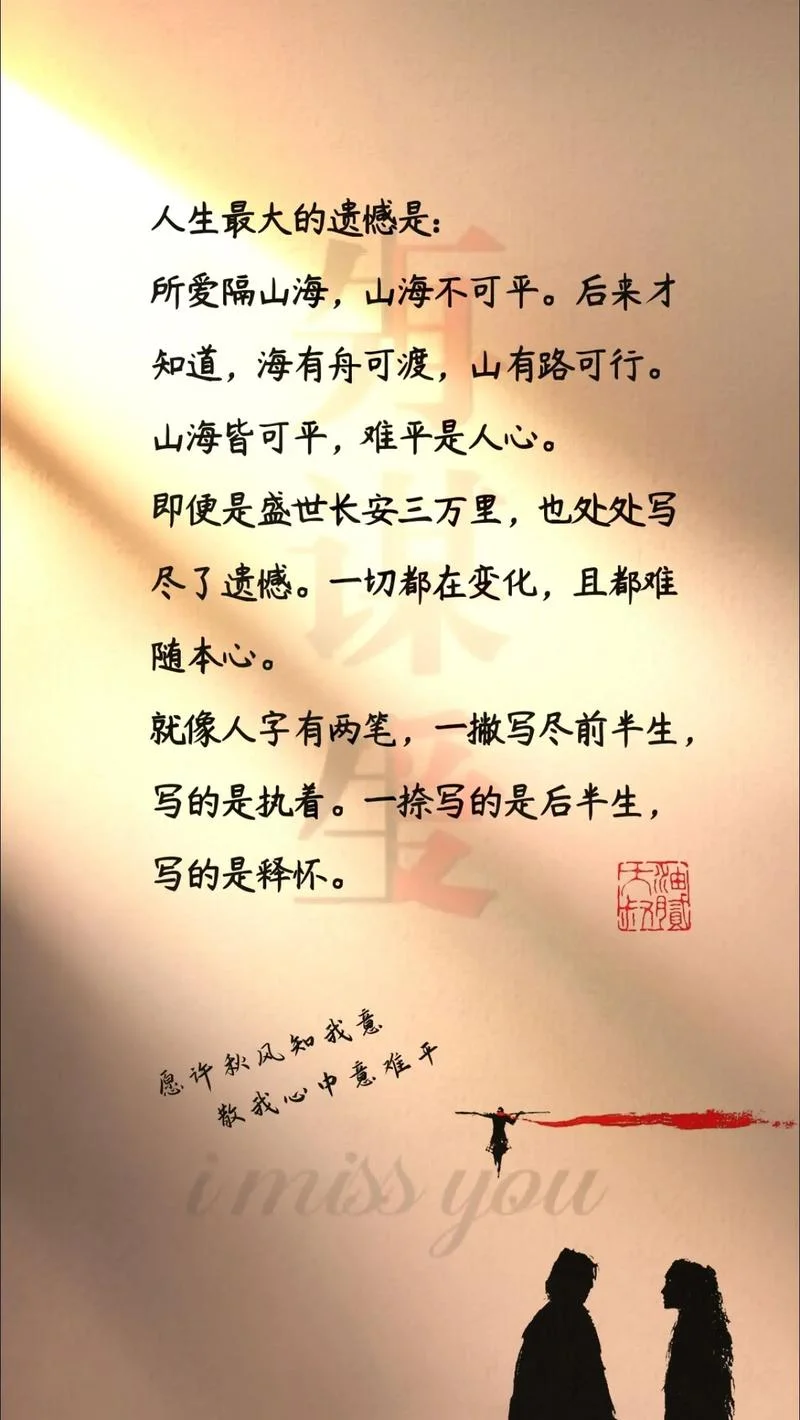 人生最大的遗憾是：
所爱隔山海，山海不可平。后来才
知道，海有舟可渡，山有路可行。
山海皆可平，难平是人心。
即便是盛世长安三万里，也处处写
尽了遗憾。一切都在变化，且都难
随本心。
就像人字有两笔，一撇写尽前半生，
写的是执着。一捺写的是后半生，
写的是释怀。
愿许秋风知我意
散我心中意难平
i miss you